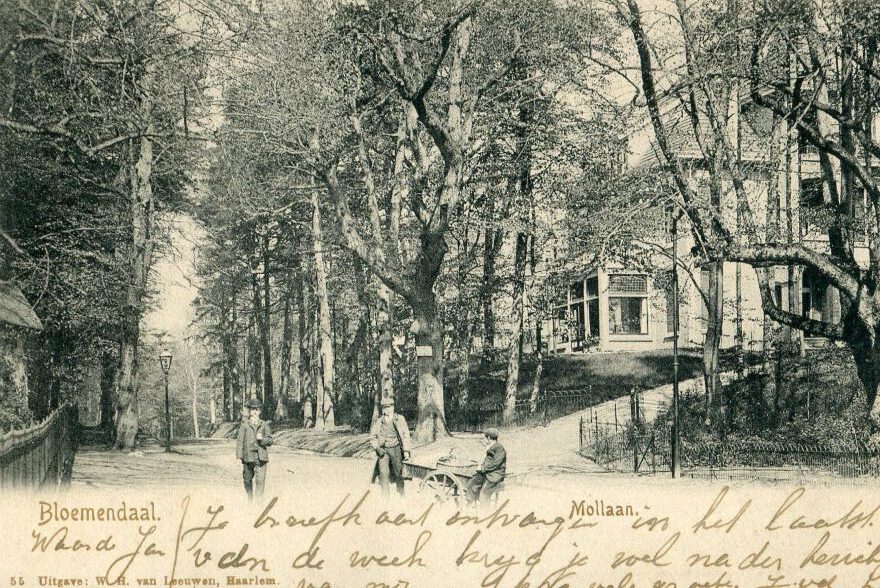 Bloemendaal. Mollaan.
Je briefkaart ontvangen in het laatst
Waarde Jan
van de week kryg je wel nader bericht
55 Uitgave: W. H. van Leeuwen, Haarlem.